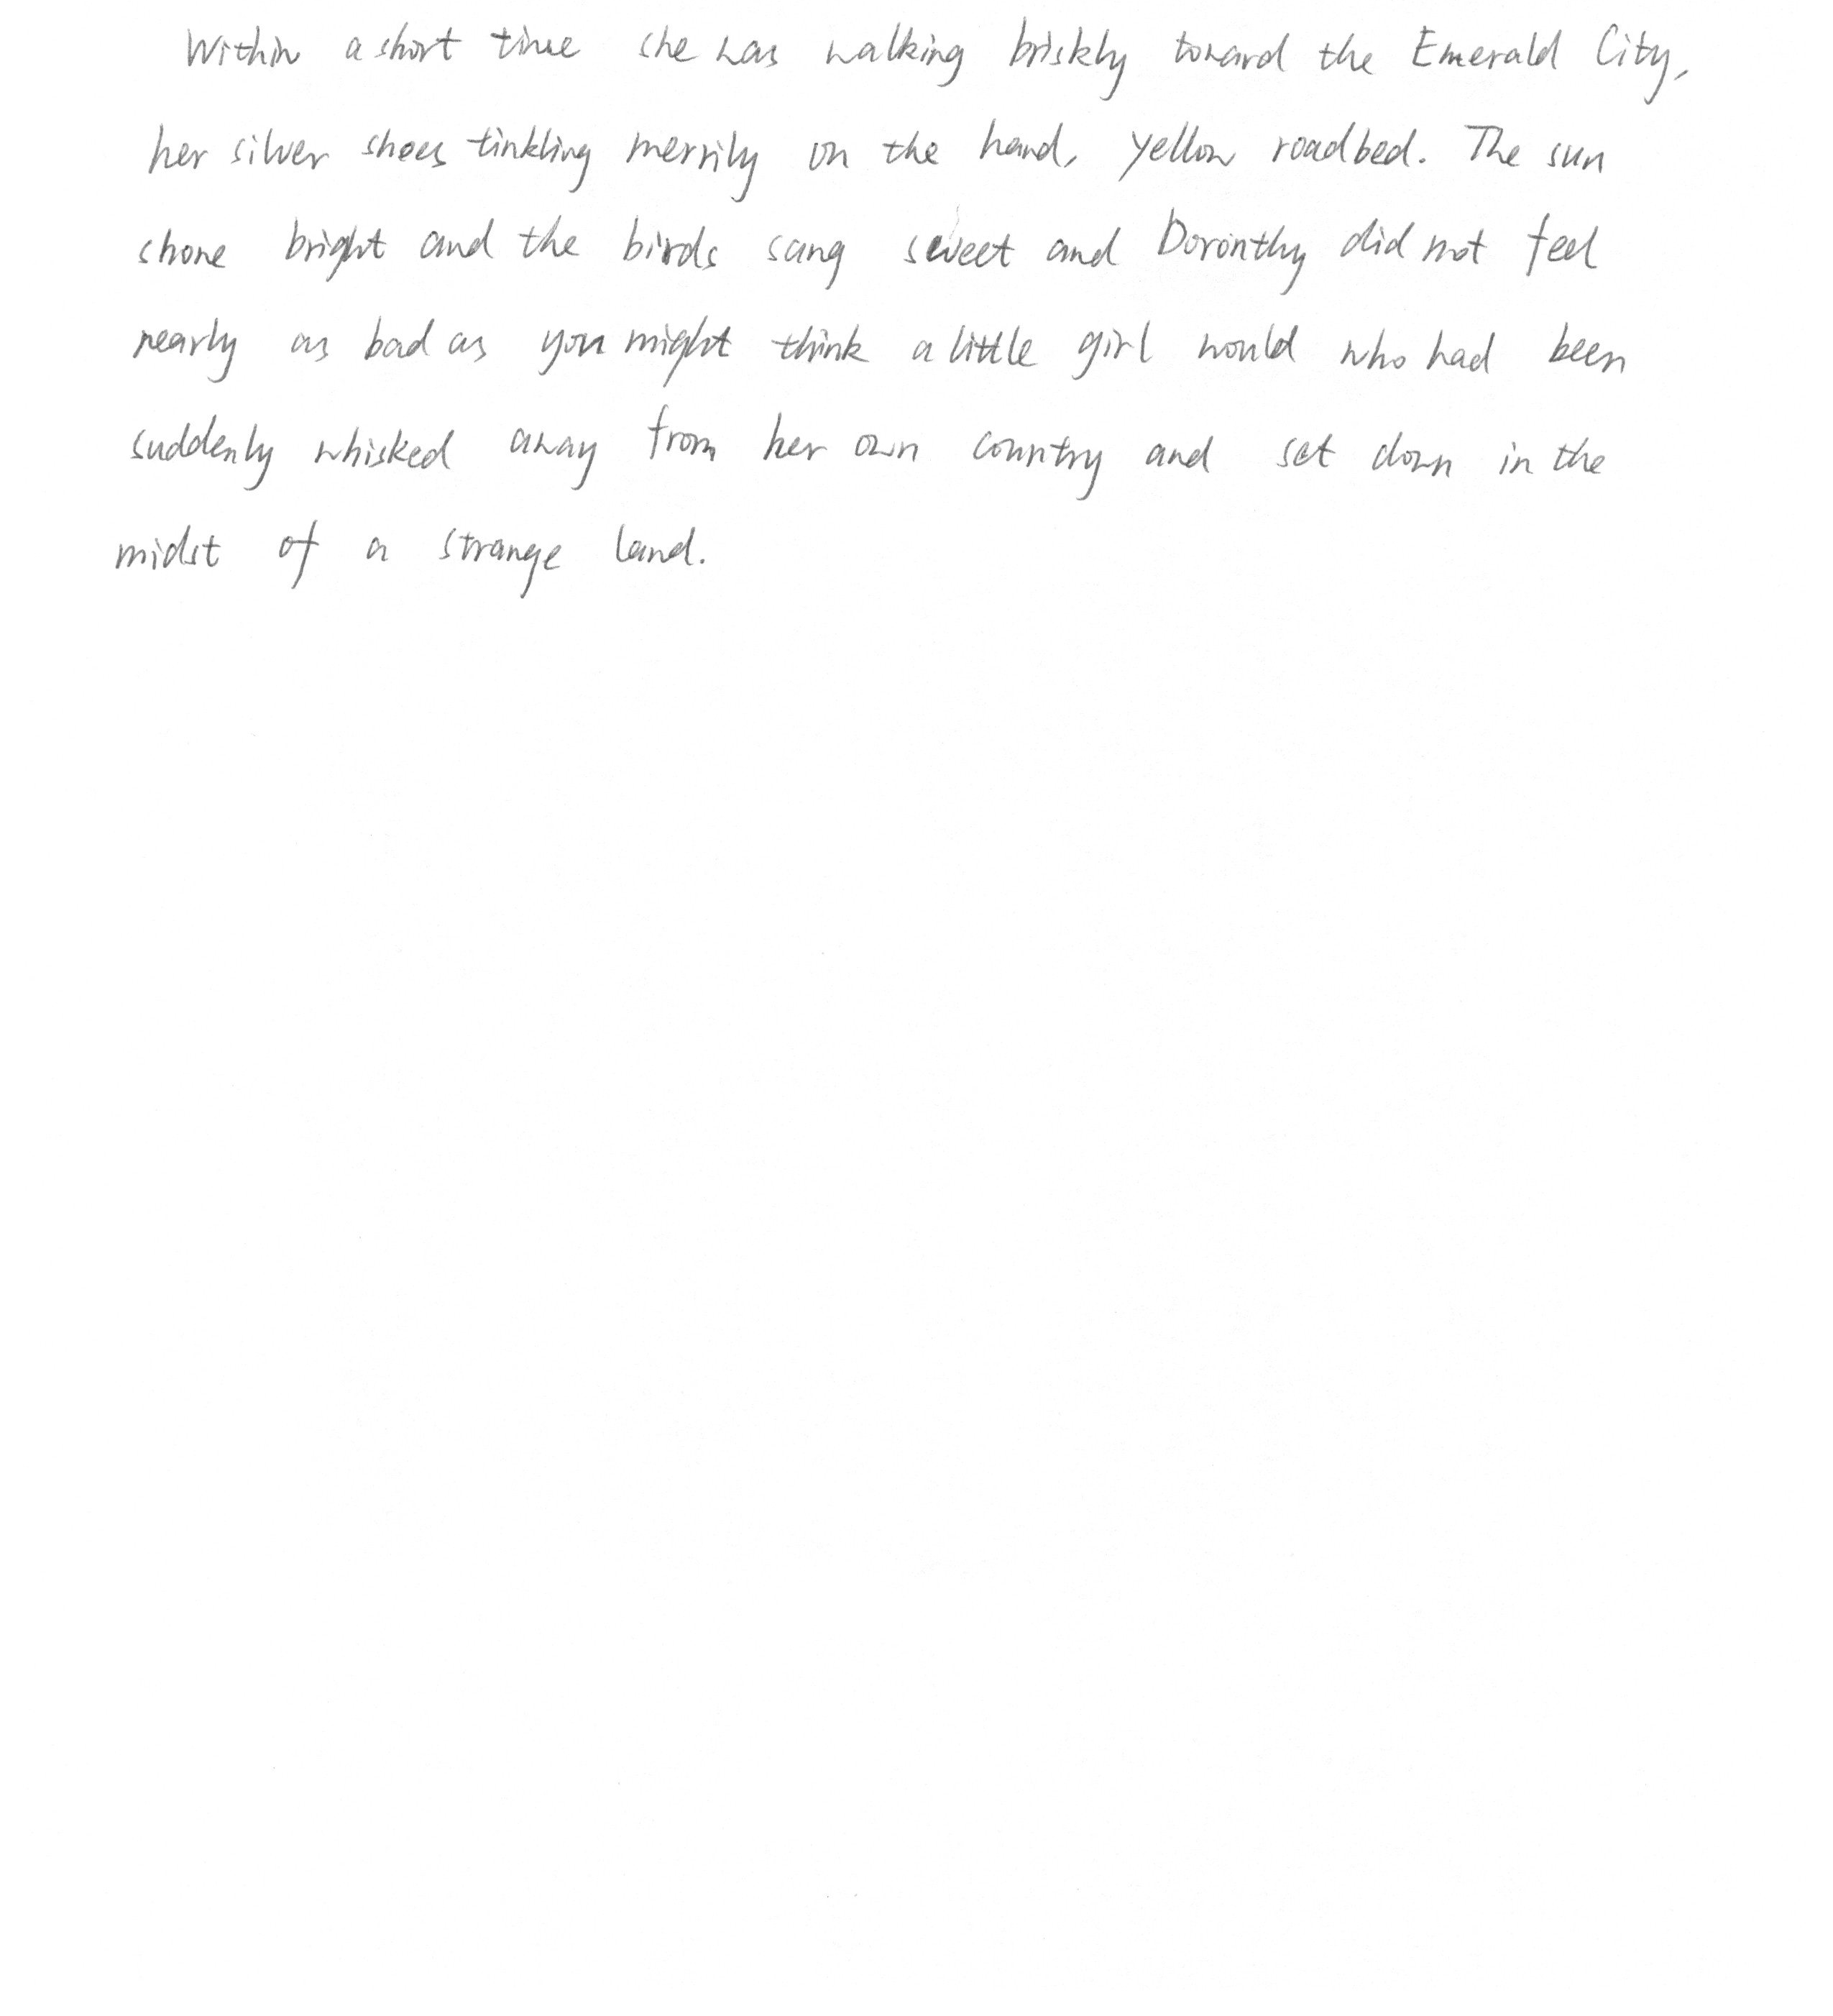 Within a short time she was walking briskly toward the Emerald City,
her silver shoes tinkling merrily on the hard, yellow roadbed. The sun
shone bright and the birds sang sweet and Doronthy did not feel
nearly as bad as you might think a little girl would who had been
suddenly whisked away from her own country and set down in the
midst of a strange land.